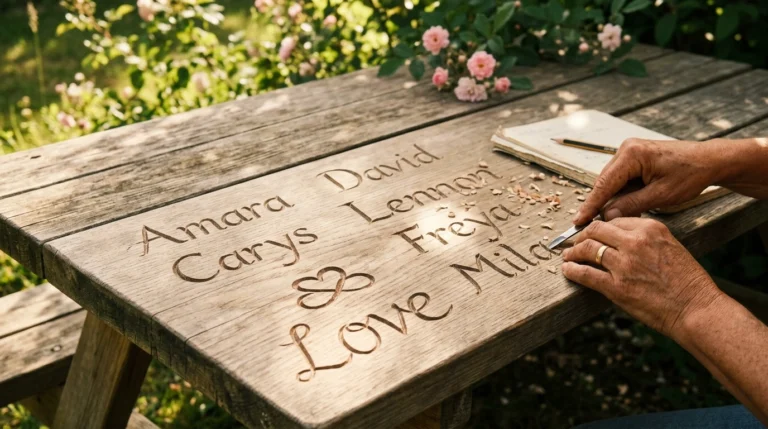 Amara David
Carys Lennon
Frëya
Love Mila